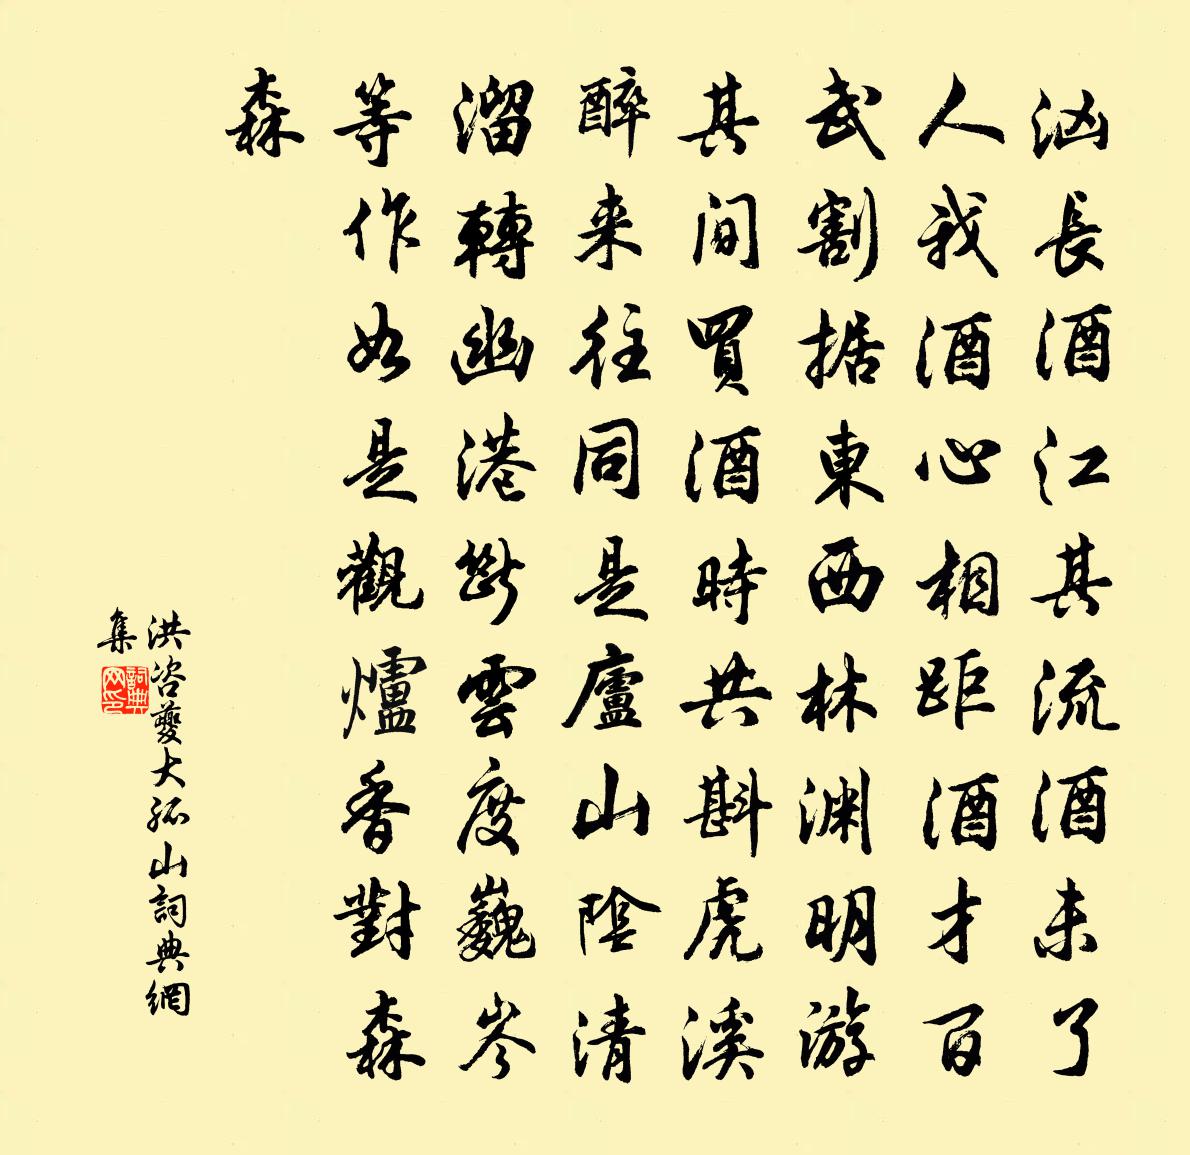 汹長酒江其流酒未了
人我酒心相距酒才百
武割据東西林淵明游
其间買酒時共斟虎溪
醉来往同是廬山陰清
溜轉幽港斷雲度巍岑
等作如是觀爐香對森
森
洪咨夔大孤山詞典網
集
詞典
网印